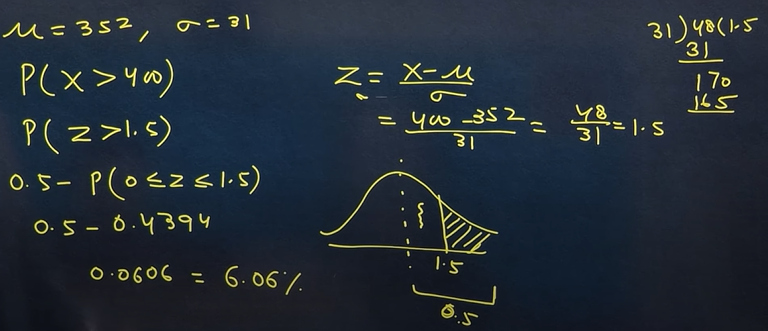 μ = 352, σ = 31
P(X > 400)
P(Z > 1.5)
0.5 - P(0 ≤ Z ≤ 1.5)
0.5 - 0.4394
0.0606 = 6.06%
Z = (X - μ)/σ
= (400 - 352)/31 = 48/31 = 1.5
1.5
0.5
31)48(1.5
31
170
165